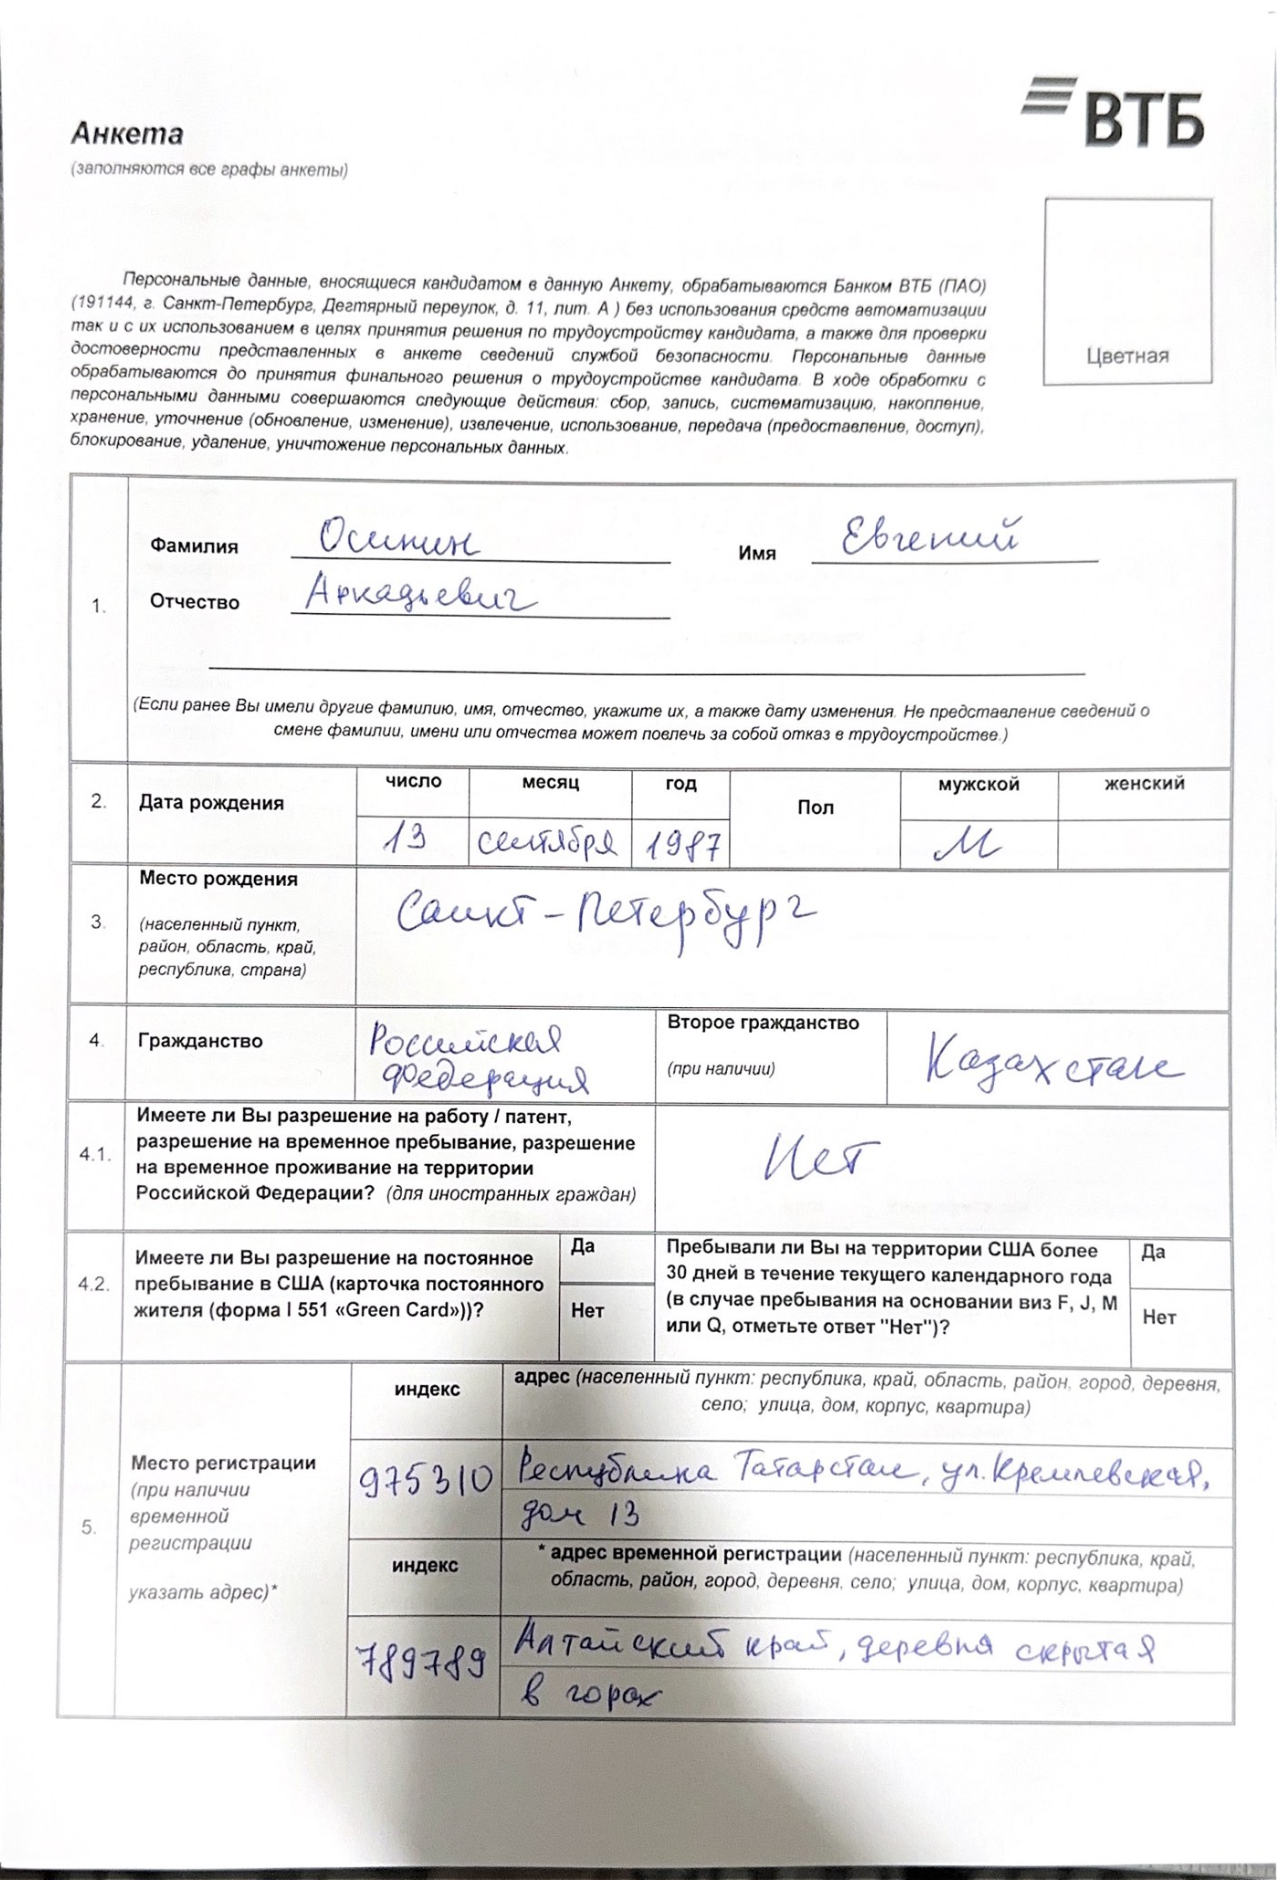 ВТБ
Анкета
(заполняются все графы анкеты)
Цветная
Персональные данные, вносящиеся кандидатом в данную Анкету, обрабатываются Банком ВТБ (ПАО)
(191144, г. Санкт-Петербург, Дегтярный переулок, д. 11, лит. А ) без использования средств автоматизации
так и с их использованием в целях принятия решения по трудоустройству кандидата, а также для проверки
достоверности представленных в анкете сведений службой безопасности. Персональные данные
обрабатываются до принятия финального решения о трудоустройстве кандидата. В ходе обработки с
персональными данными совершаются следующие действия: сбор, запись, систематизацию, накопление,
хранение, уточнение (обновление, изменение), извлечение, использование, передача (предоставление, доступ),
блокирование, удаление, уничтожение персональных данных.
1.
Фамилия Осинин Имя Евгений
Отчество Аркадьевич
(Если ранее Вы имели другие фамилию, имя, отчество, укажите их, а также дату изменения. Не представление сведений о
смене фамилии, имени или отчества может повлечь за собой отказ в трудоустройстве.)
2. Дата рождения число месяц год Пол мужской женский
13 сентября 1987 М
3. Место рождения
(населенный пункт,
район, область, край,
республика, страна)
Санкт-Петербург
4. Гражданство
Российская
Федерация
Второе гражданство
(при наличии)
Казахстан
4.1. Имеете ли Вы разрешение на работу / патент,
разрешение на временное пребывание, разрешение
на временное проживание на территории
Российской Федерации? (для иностранных граждан)
Нет
4.2. Имеете ли Вы разрешение на постоянное
пребывание в США (карточка постоянного
жителя (форма I 551 «Green Card»))?
Да
Нет
Пребывали ли Вы на территории США более
30 дней в течение текущего календарного года
(в случае пребывания на основании виз F, J, M
или Q, отметьте ответ "Нет")?
Да
Нет
5. Место регистрации
(при наличии
временной
регистрации
указать адрес)*
индекс
адрес (населенный пункт: республика, край, область, район, город, деревня,
село; улица, дом, корпус, квартира)
975310
Республика Татарстан, ул. Кремлевская,
дом 13
индекс
* адрес временной регистрации (населенный пункт: республика, край,
область, район, город, деревня, село; улица, дом, корпус, квартира)
789789
Алтайский край, деревня скрытая
в горах